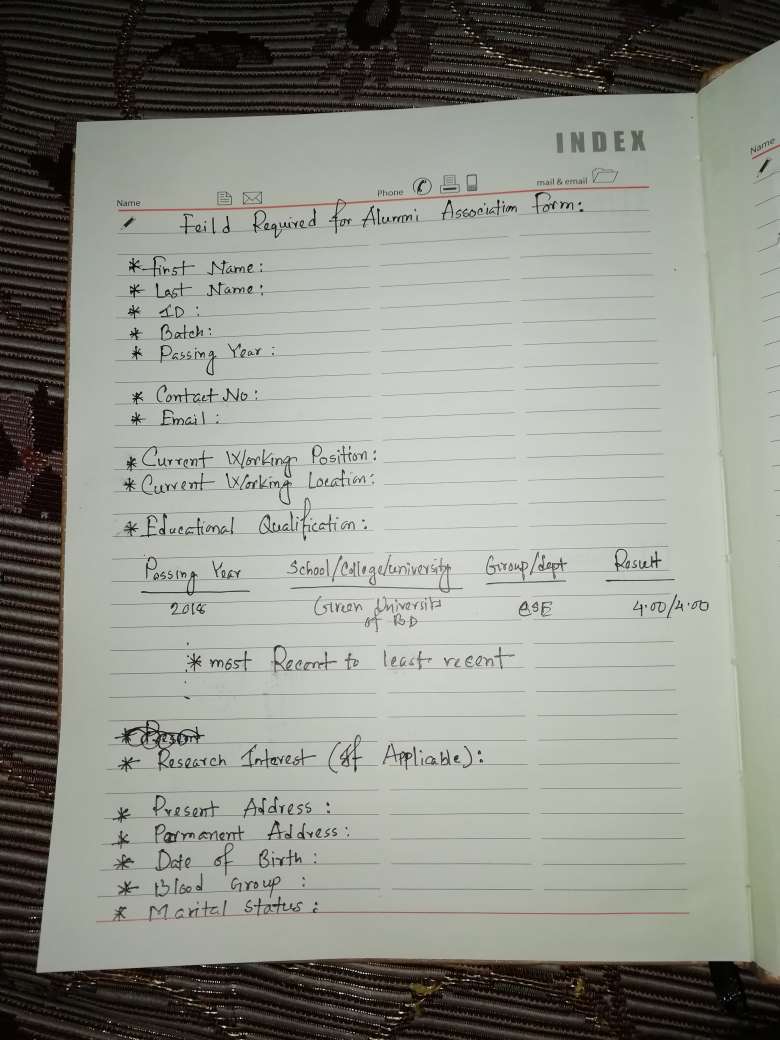 INDEX
Name Phone mail & email
Feild Required for Alumni Association Form:
* First Name:
* Last Name:
* ID:
* Batch:
* Passing Year:
* Contact No:
* Email:
* Current Working Position:
* Current Working Location:
* Educational Qualification:
Passing Year School/College/university Group/dept Result
2018 Green Universit of BD CSE 4.00/4.00
* most Recent to least recent
* Present
* Research Interest (If Applicable):
* Present Address:
* Parmanent Address:
* Date of Birth:
* Blood Group :
* Marital Status:
Name